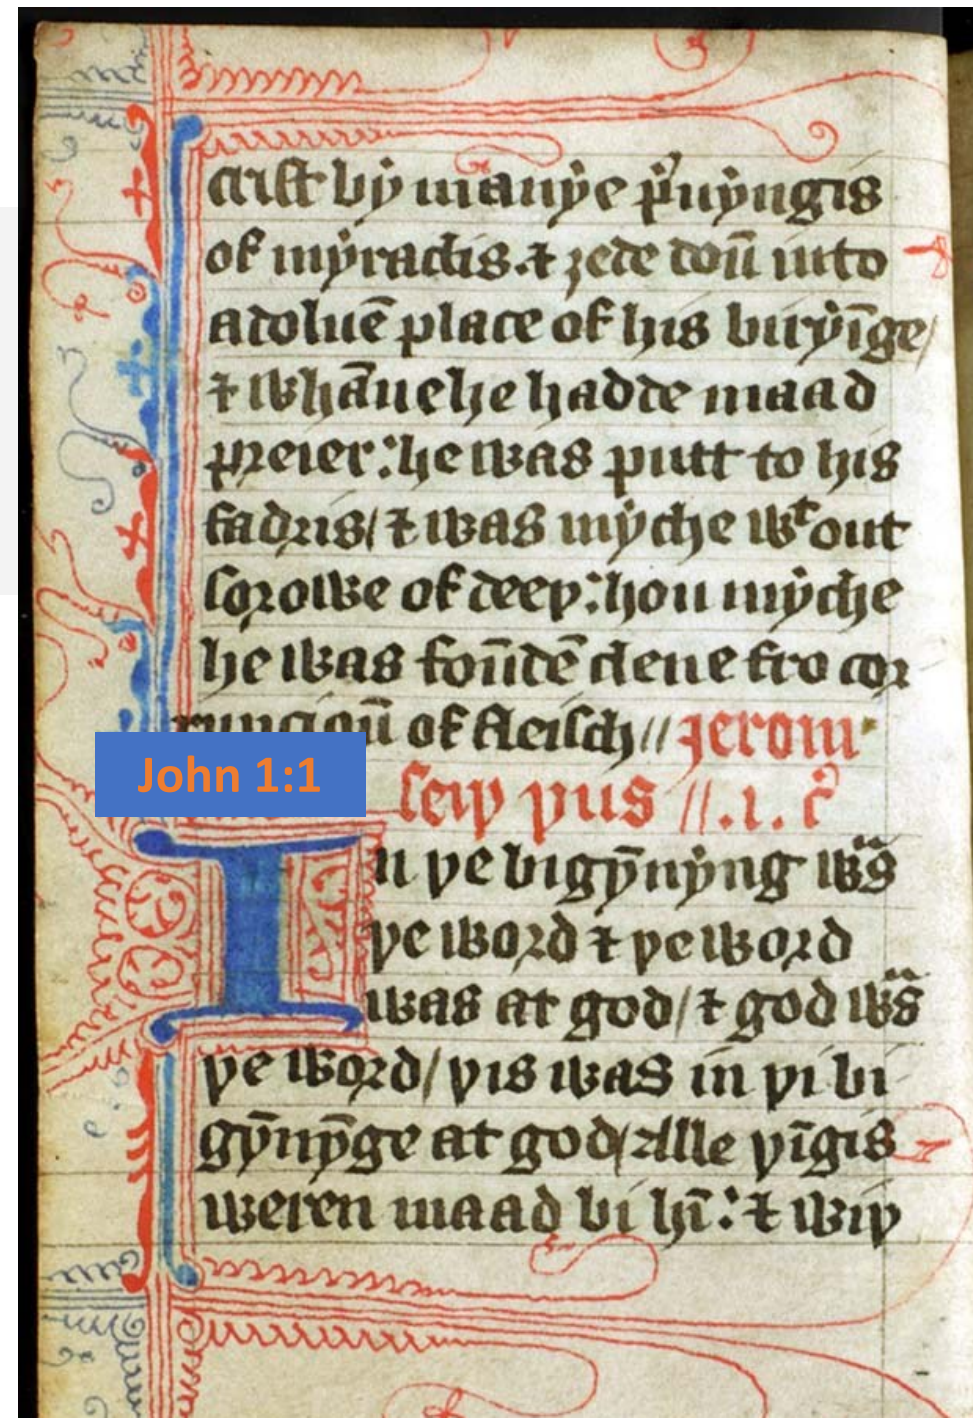 crist bẏ manẏe p̓uẏngis
of mẏraclis.⁊ ȝede doū into
adoluē place of his birẏīge/
⁊ whāne he hadde maad
preier:he was putt to his
fadris/⁊ was mẏche wᵗout
sorowe of deeþ:hou mẏche
he was foūdē clene fro cor
rupcioū of fleisch// Jerom
John 1:1
seiþ þus //.i. c̓
In þe bigȳnẏng wᵃs
þe word ⁊ þe word
was at god/⁊ god wᵃs
þe word/þis was in þi bi
gȳnȳge at god/Alle þīgis
weren maad bi hī:⁊ wiþ